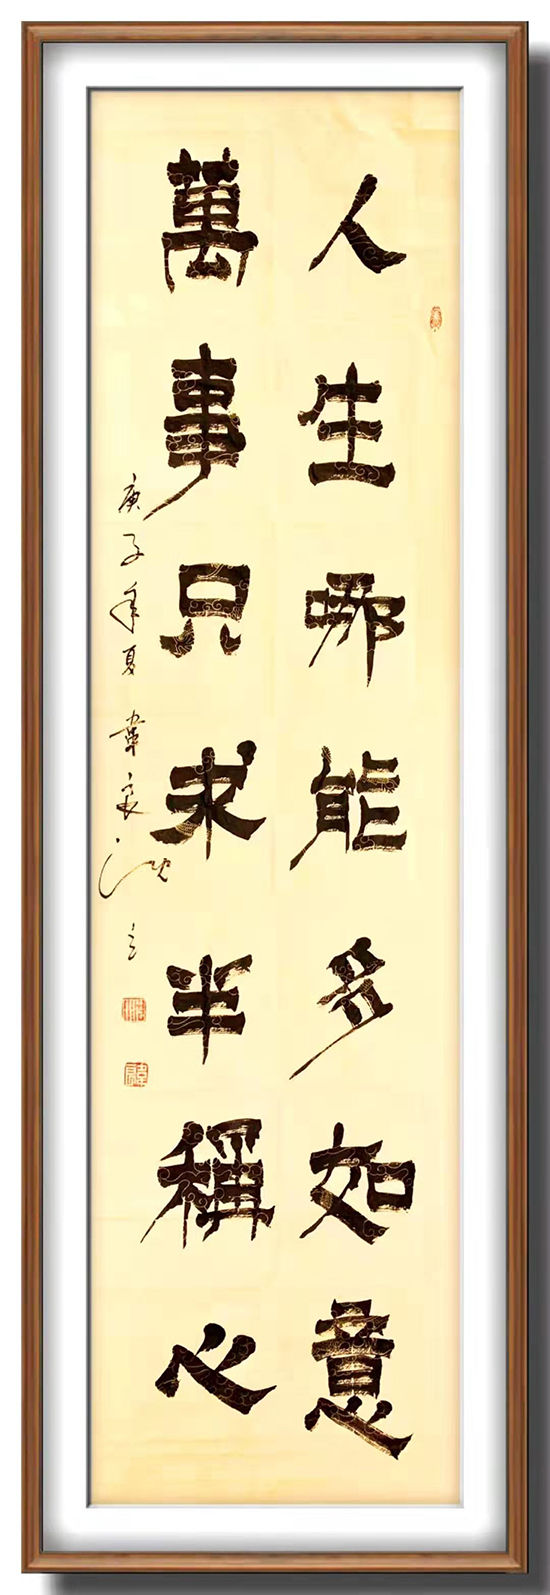 人生哪能多如意
萬事只求半稱心
庚子年夏韋良